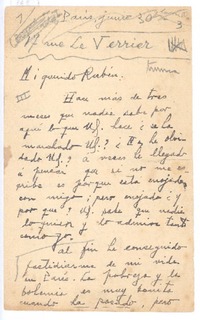 1
Paris, junio 30
3
12 rue Le Verrier
Mi querido Rubén.
III Hace más de tres
meses que nadie sabe por
aquí lo que Ud. hace; ¿se ha
marchado Ud.? ¿Me ha olvi
dado Ud.? A veces he llegado
a pensar que si no me es
cribe es porque está enojado
conmigo; pero enojado; ¿y
por qué? Ud. sabe que nadie
lo quiere y lo admira tanto
como yo.
Al fin he conseguido
fastidiarme de mi vida
en París. La pobreza y la
bohemia es muy bonita
cuando ha pasado, pero